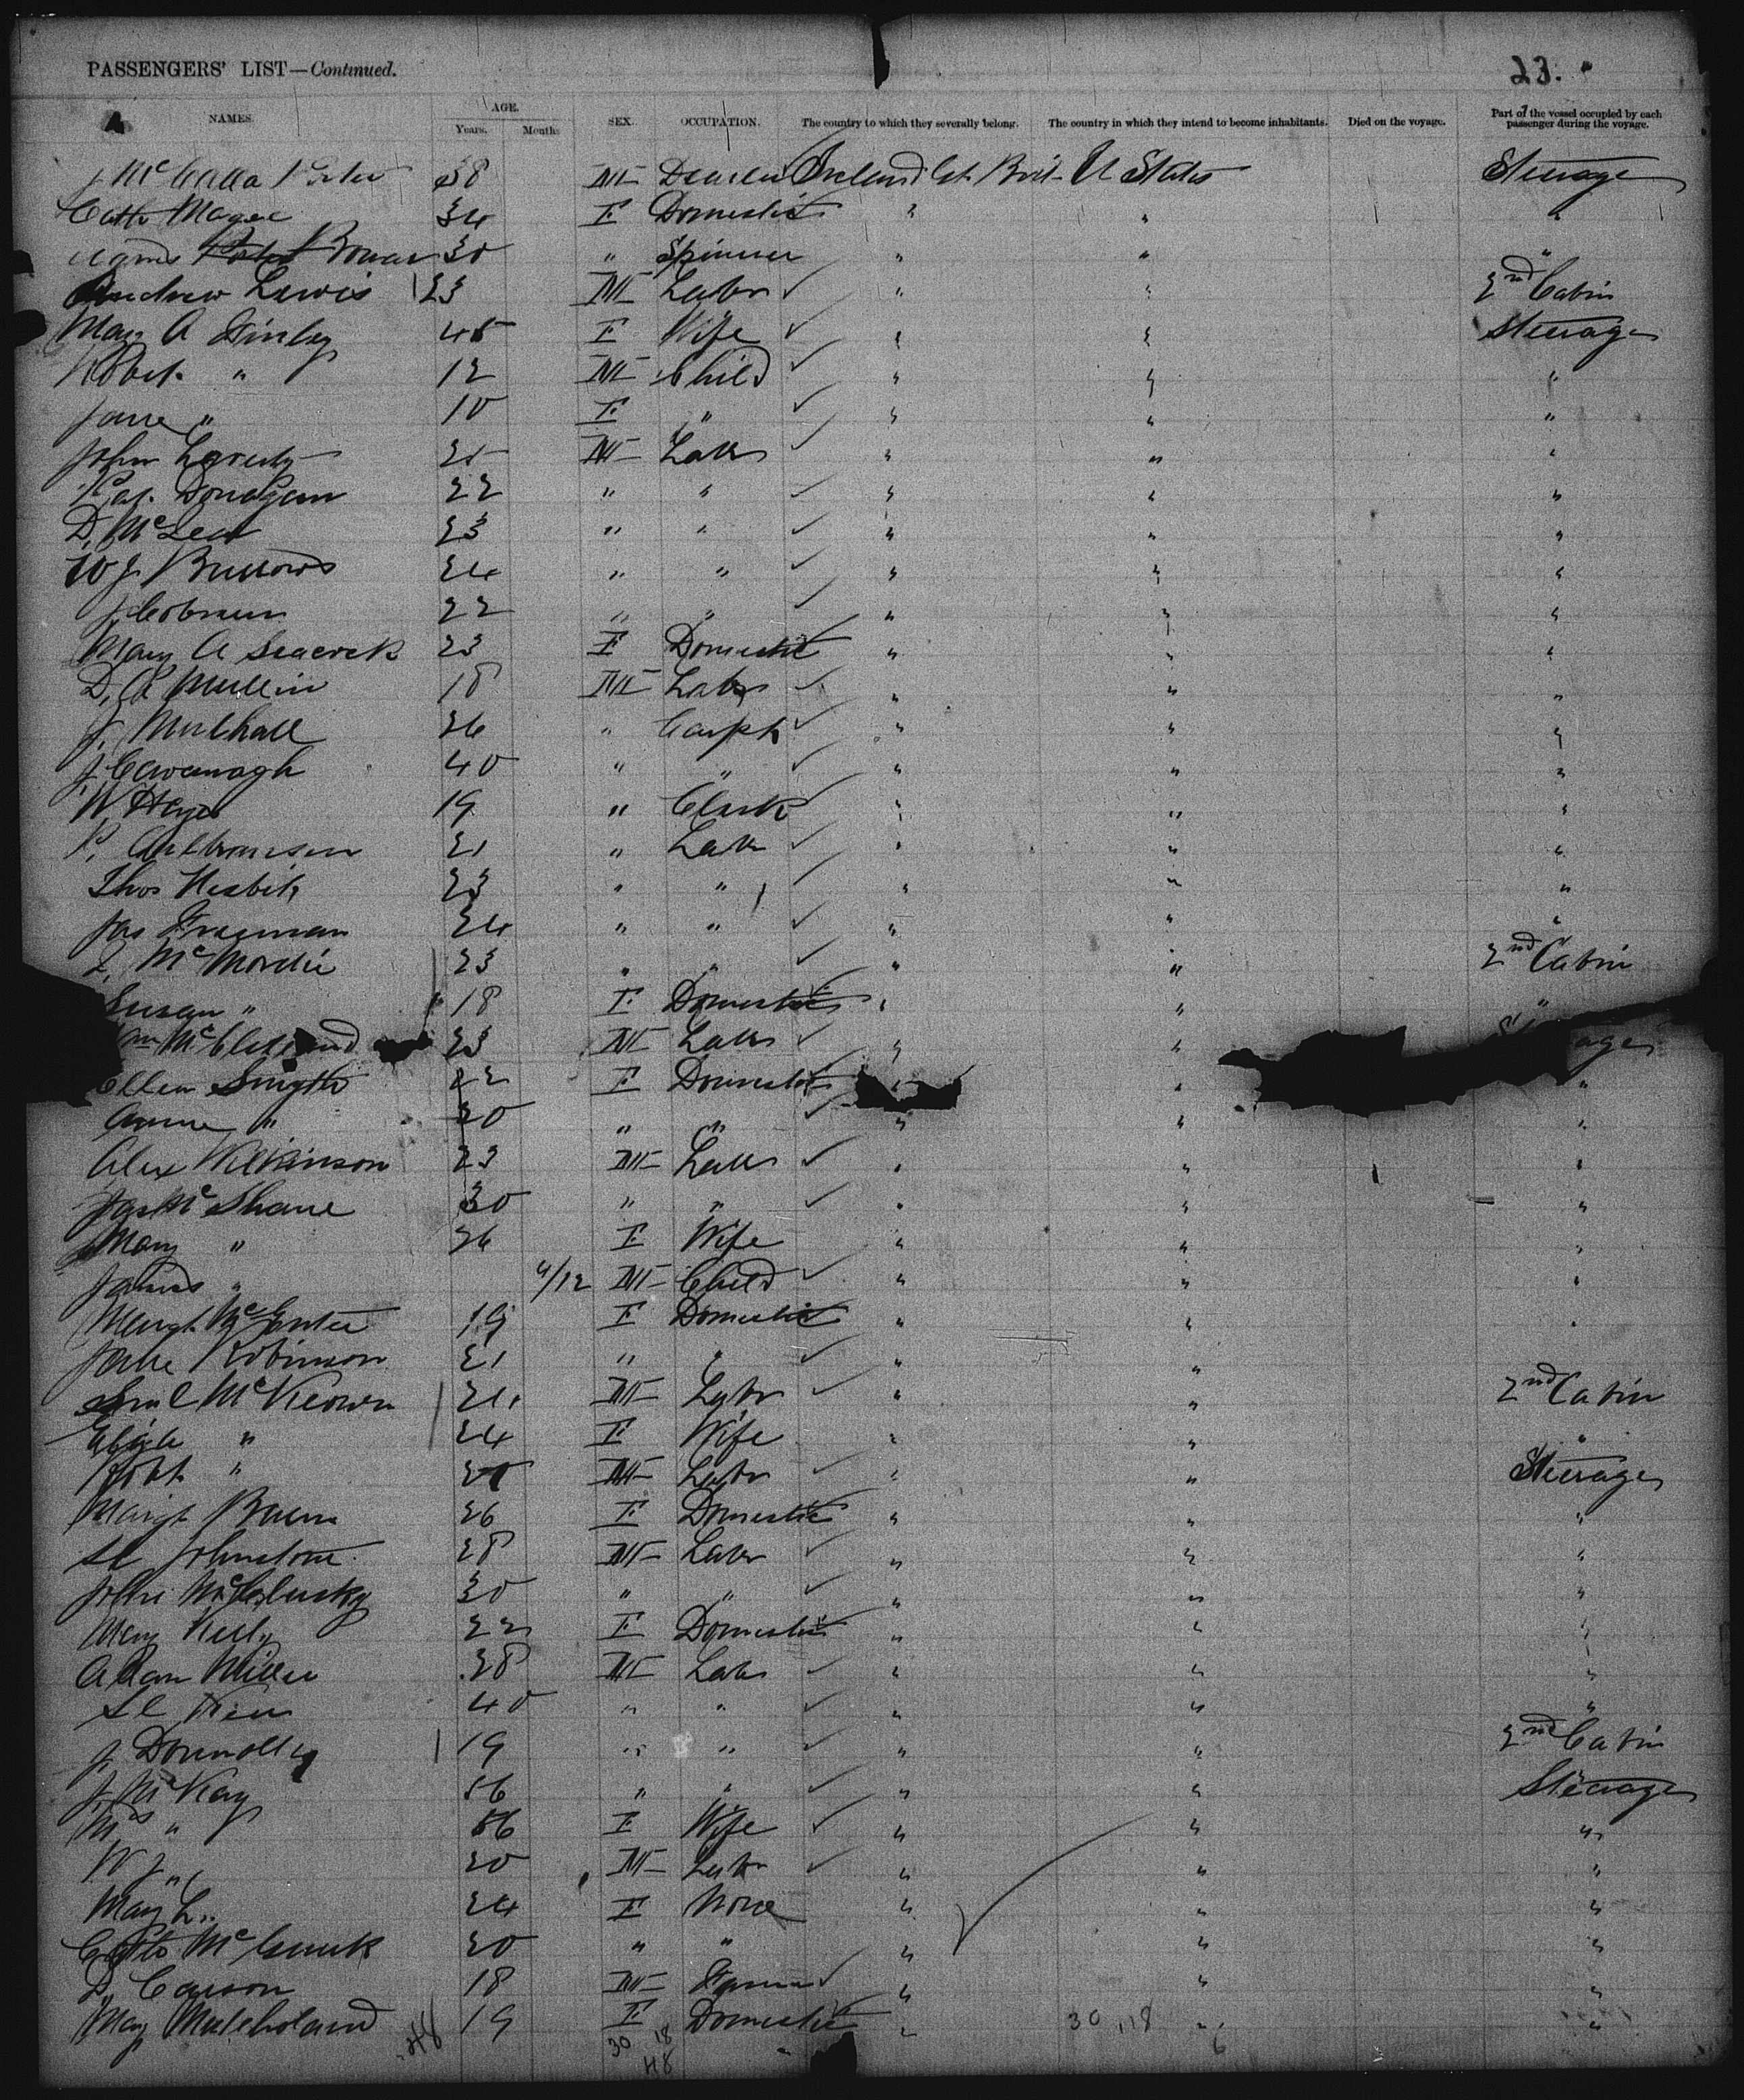 PASSENGERS' LIST—Continued. 23.
NAMES. AGE. Years. Months SEX. OCCUPATION. The country to which they severally belong. The country in which they intend to become inhabitants. Died on the voyage. Part of the vessel occupied by each passenger during the voyage.
J McCalla 38 M Ireland Gt. Brit- U States Steerage
Cath Magee 34 F Domestic " " "
30 " Spinner " " "
Andrew Lewis 23 M Labr " " 2nd Cabin
Mary A Finlay 45 F Wife " " Steerage
Robt. " 12 M Child " " "
Jane " 10 F " " " "
John Laverty 21 M Labr " " "
Pat. Donagan 22 " " " " "
D. McLean 23 " " " " "
W J Burrows 24 " " " " "
J. 22 " " " " "
Mary A 23 F Domestic " " "
D. A Mullin 18 M Labr " " "
J. Mulhall 26 " Carpt " " "
J. Cavanagh 40 " " " " "
W Hayes 19 " Clerk " " "
21 " Labr " " "
Thos Nesbit 23 " " " " "
Jas Freeman 24 " " " " "
McMordie 23 " " " " 2nd Cabin
Susan " 18 F Domestic " " "
McClelland 23 M Labr " "
Ellen Smyth 22 F Domestic " " "
Annie " 20 " " " " "
Alex Wilkinson 23 M Labr " " "
Jas McShane 30 " " " " "
Mary " 26 F Wife " " "
James " /12 M Child " " "
Margt. McEntee 19 F Domestic " " "
Jane Robinson 21 " " " " "
Saml McKeown M Labr " " 2nd Cabin
Eliza " 24 F Wife " " "
Robt. " M Labr " " Steerage
Margt 26 F Domestic " " "
Johnstone 28 M Labr " " "
John McCluskey 30 " " " " "
Mary Kelly 22 F Domestic " " "
Adam Miller 28 M Labr " " "
40 " " " " "
J. Donnolly 19 " " " " 2nd Cabin
J. McKay 56 " " " " Steerage
Mrs " 56 F Wife " " "
W J " 20 M Labr " " "
Mary L " 24 F None " " "
20 " " " " "
D. Carson 18 M Farmer " " "
Mary Mulholand 19 F Domestic " " "
48 30 18 30 118 6
48